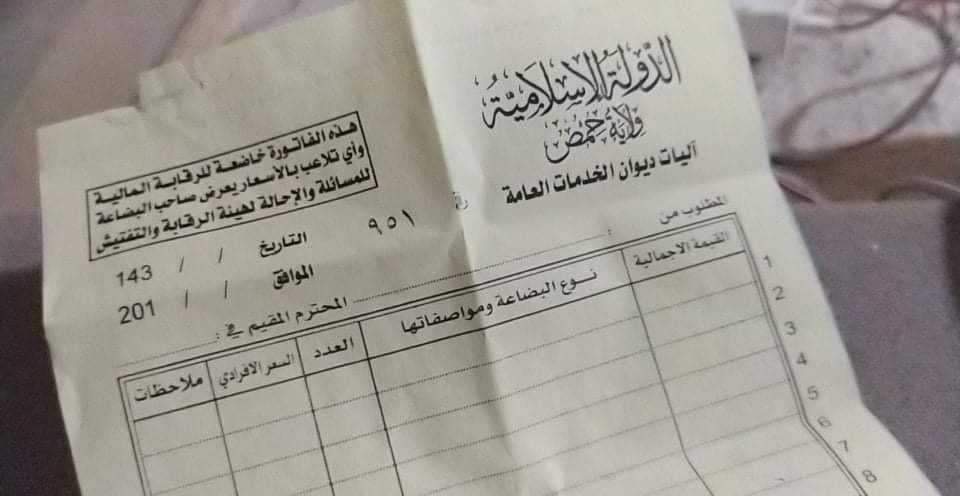 الدولة الإسلامية
ولاية حمص
آليات ديوان الخدمات العامة
هذه الفاتورة خاضعة للرقابة المالية
وأي تلاعب بالأسعار يعرض صاحب البضاعة
للمسائلة والإحالة لهيئة الرقابة والتفتيش
٩٥١
التاريخ / / 143
الموافق / / 201
المطلوب من :
المحترم المقيم في :
القيمة الاجمالية نوع البضاعة ومواصفاتها العدد السعر الافرادي ملاحظات
1
2
3
4
5
6
7
8